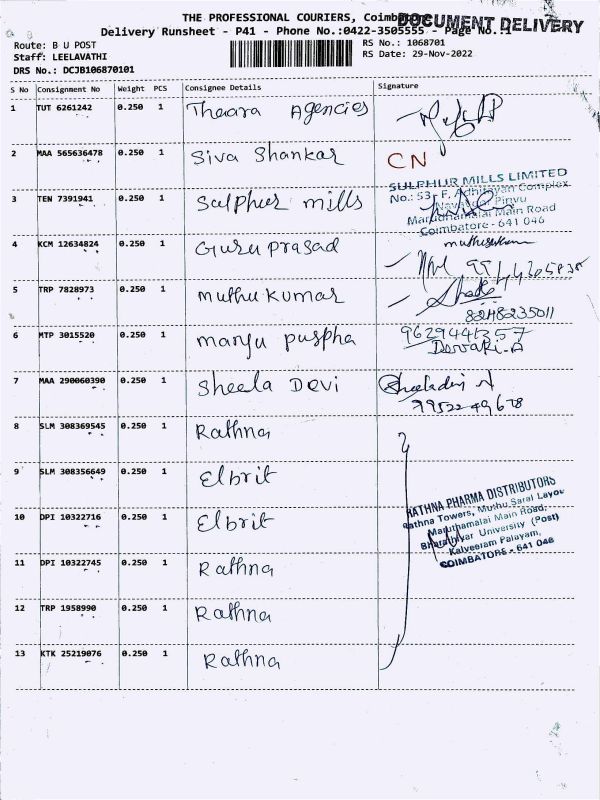 THE PROFESSIONAL COURIERS, Coimbatore
DOCUMENT DELIVERY
Delivery Runsheet - P41 - Phone No.:0422-3505555 - Page No.:1
Route: B U POST
RS No.: 1068701
Staff: LEELAVATHI
RS Date: 29-Nov-2022
DRS No.: DCJB106870101
S No Consignment No Weight PCS Consignee Details Signature
1 TUT 6261242 0.250 1 Thaara Agencies
2 MAA 565636478 0.250 1 Siva Shankar CN
SULPHUR MILLS LIMITED
No.: 53, F, Adhitayan Complex
3 TEN 7391941 0.250 1 Sulphur mills
Maruthamalai Main Road
Coimbatore - 641 046
4 KCM 12634824 0.250 1 Guru prasad
muthukumar
5 TRP 7828973 0.250 1 muthu kumar
8248235011
6 MTP 3015520 0.250 1 manju puspha 9629441357
Devaki.A
7 MAA 290060390 0.250 1 Sheela Devi Sheeladevi A
8 SLM 308369545 0.250 1 Rathna
9 SLM 308356649 0.250 1 Elbrit
RATHNA PHARMA DISTRIBUTORS
Rathna Towers, Muthu Saral Layou
10 DPI 10322716 0.250 1 Elbrit
Maruthamalai Main Road,
Bharathiyar University (Post)
Kalveeram Palayam,
COIMBATORE - 641 046
11 DPI 10322745 0.250 1 Rathna
12 TRP 1958990 0.250 1 Rathna
13 KTK 25219076 0.250 1 Rathna